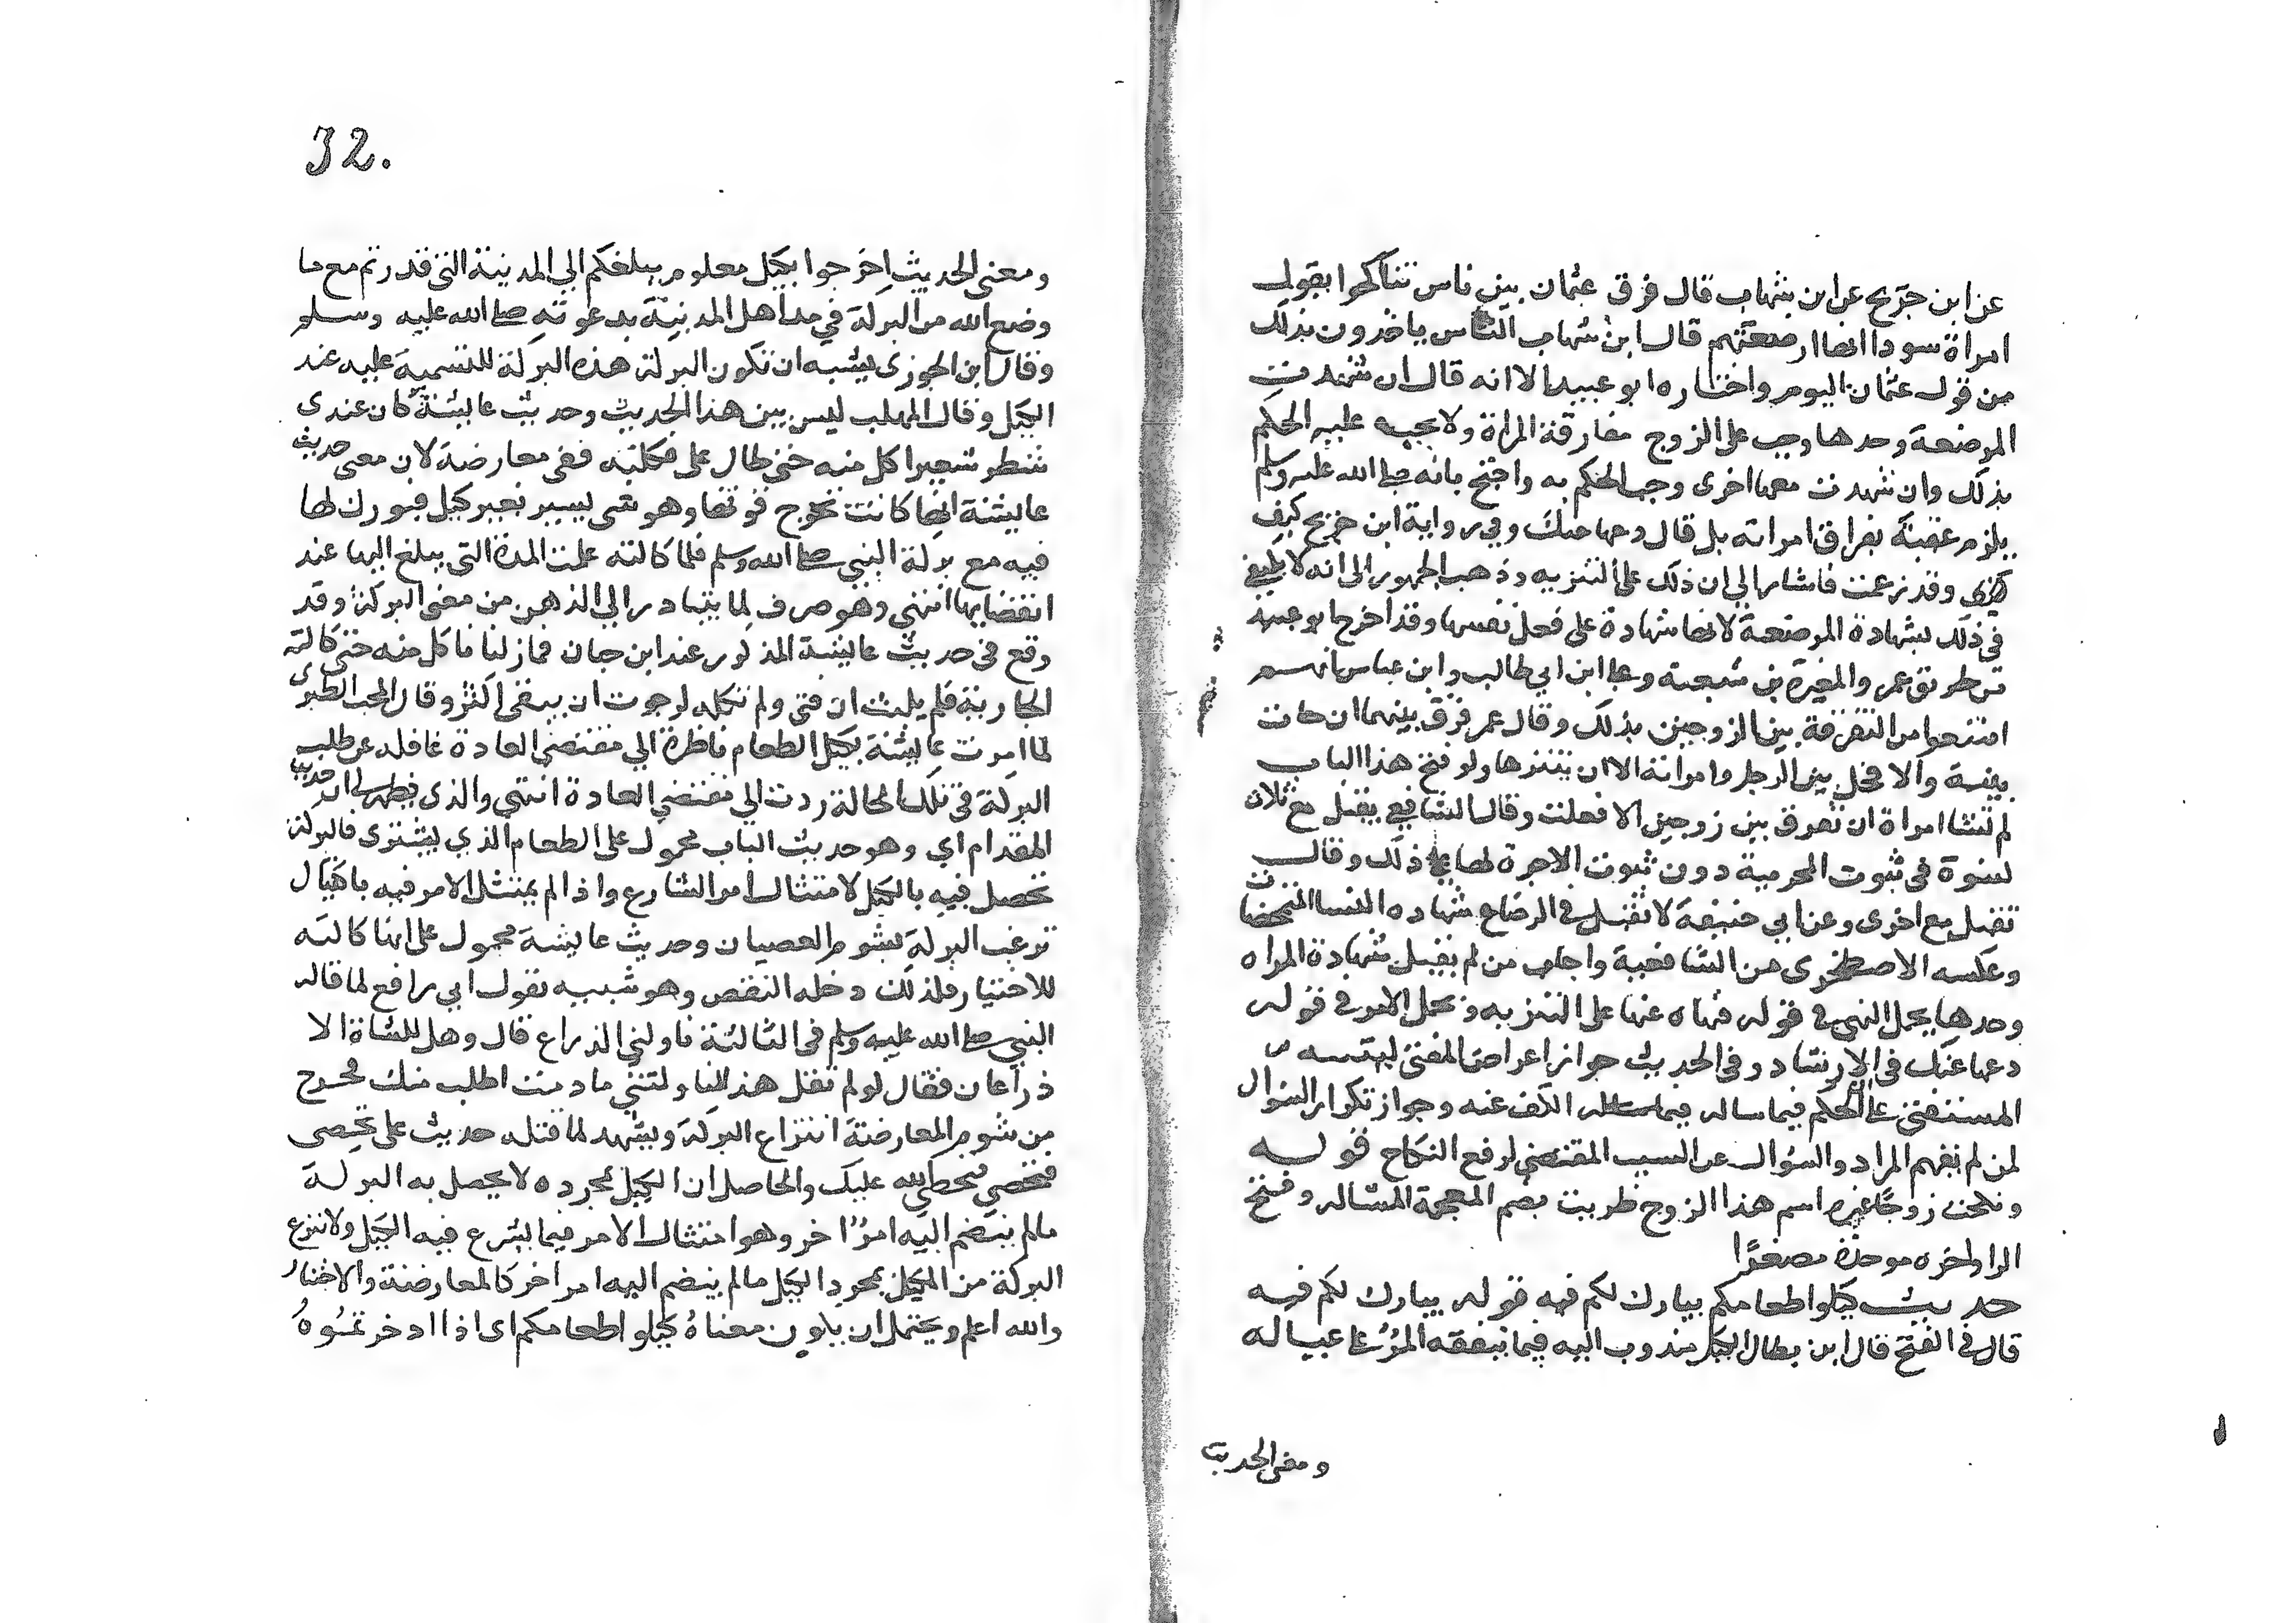 عن ابن جريح عن ابن شهاب قال فرق عثمان بين ناس تناكحوا بقول
امراة سودا انها ارضعتهم قال ابن شهاب الناس ياخذون بذلك
من قول عثمان اليوم واختاره ابو عبيد الا انه قال ان شهدت
المرضعة وحدها وجب على الزوج مفارقة المراة ولا يجب عليه الحكم
بذلك وان شهدت معها اخرى وجب الحكم به واحتج بانه صلى الله عليه وسلم
يلزم عقبة بفراق امراته بل قال دعها عنك وفي رواية ابن جريج كيف
وقد زعمت فاشار الى ان ذلك على التنزيه وذهب الجمهور الى انه لا يكفي
في ذلك شهادة المرضعة لانها شهادة على فعل نفسها وقد اخرج ابو عبيد
من طريق عمر والمغيرة بن شعبة وعلى ابن ابي طالب وابن عباس انهم
امتنعوا من التفرقة بين الزوجين بذلك وقال عمر فرق بينهما ان جات
بينة والا فخل بين الرجل وامراته الا ان يتنزها ولو فتح هذا الباب
لم تشا امراة ان تفرق بين زوجين الا فعلت وقال الشافعي يقبل مع ثلاث
نسوة في ثبوت المحرمية دون ثبوت الاجرة لها على ذلك وقال
تقبل مع اخرى وعن ابي حنيفة لا تقبل في الرضاع شهاده النسا المتمحضات
وعكسه الاصطخرى من الشافعية واجاب من لم يقبل شهادة المراه
وحدها بحمل النهي في قوله فنهاه عنها على التنزيه وبحمل الامر في قوله
دعها عنك في الارشاد وفي الحديث جواز اعراض المفتى ليتنبه
المستفتى على الحكم فيما ساله الكف عنه وجواز تكرار السؤال
لمن لم يفهم المراد والسؤال عن السبب المقتضي لرفع النكاح قوله
ونكحت زوجًا غيره اسم هذا الزوج ظريب بضم المعجمة المشاله وفتح
الرا واخره موحدة مصغرًا
حديث كيلوا طعامكم يبارك لكم فيه قوله يبارك لكم فيه
قال في الفتح قال ابن بطال الكيل مندوب اليه فيما ينفقه المرؤ على عياله
ومعنى الحديث
32.
ومعنى الحديث اخرجوا بكيل معلوم يبلغكم الى المدينة التي قدرتم مع ما
وضع الله من البركة في مد اهل المدينة بدعوته صلى الله عليه وسلم
وقال ابن الجوزى يشبه ان تكون البركة هذه البركة للتسمية عليه عند
الكيل وقال المهلب ليس بين هذا الحديث وحديث عايشة كان عندى
شطر شعيرا كل منه حتى طال على فكلته ففى معارضة لان معنى حديث
عايشة انها كانت تخرج قوتها وهو شى يسير بغير كيل فبورك لها
فيه مع بركة النبي صلى الله وسلم فلما كالته علمت المدة التى يبلغ اليها عند
انقضايها انتهى وهو صرف لما يتبادر الى الذهن من معنى البركة وقد
وقع في حديث عايشة المذكور عند ابن حبان فما زلنا ناكل منه حتى كالته
الجارية فلم يلبث ان فنى ولم تكله لرجوت ان يبقى اكثر وقال المحب الطبرى
لما امرت عايشة بكيل الطعام ناظرة الى مقتضى العادة غافله عن طلب
البركة في تلك الحالة ردت الى مقتضى العادة انتهى والذى يظهر لي ان حديث
المقدام اي وهو حديث الباب محمول على الطعام الذي يشترى فالبركة
تحصل فيه بالكيل لامتثال امر الشارع واذا لم يمتثل الامر فيه باكتيال
نزعت البركة بشوم العصيان وحديث عايشة محمول على انها كالته
للاختيار فلذلك دخله النقص وهو شبيه بقول ابي رافع لما قال له
النبي صلى الله عليه وسلم في الثالثة ناولني الذراع قال وهل للشاة الا
ذراعان فقال لو لم تقل هذا لناولتني ما دمت اطلب منك فخرج
من شوم المعارضة انتزاع البركة ويشهد لما قتله حديث على تحصى
فيحصى الله عليك والحاصل ان الكيل بمجرده لا يحصل به البركة
مالم ينضم اليه امرًا اخر وهو امتثال الامر فيما يشرع فيه الكيل ولا تنزع
البركة من المكيل بمجرد الكيل مالم ينضم اليه امر اخر كالمعارضة والاختبار
والله اعلم ويحتمل ان يكون معناه كيلوا طعامكم اى اذا ادخرتموه